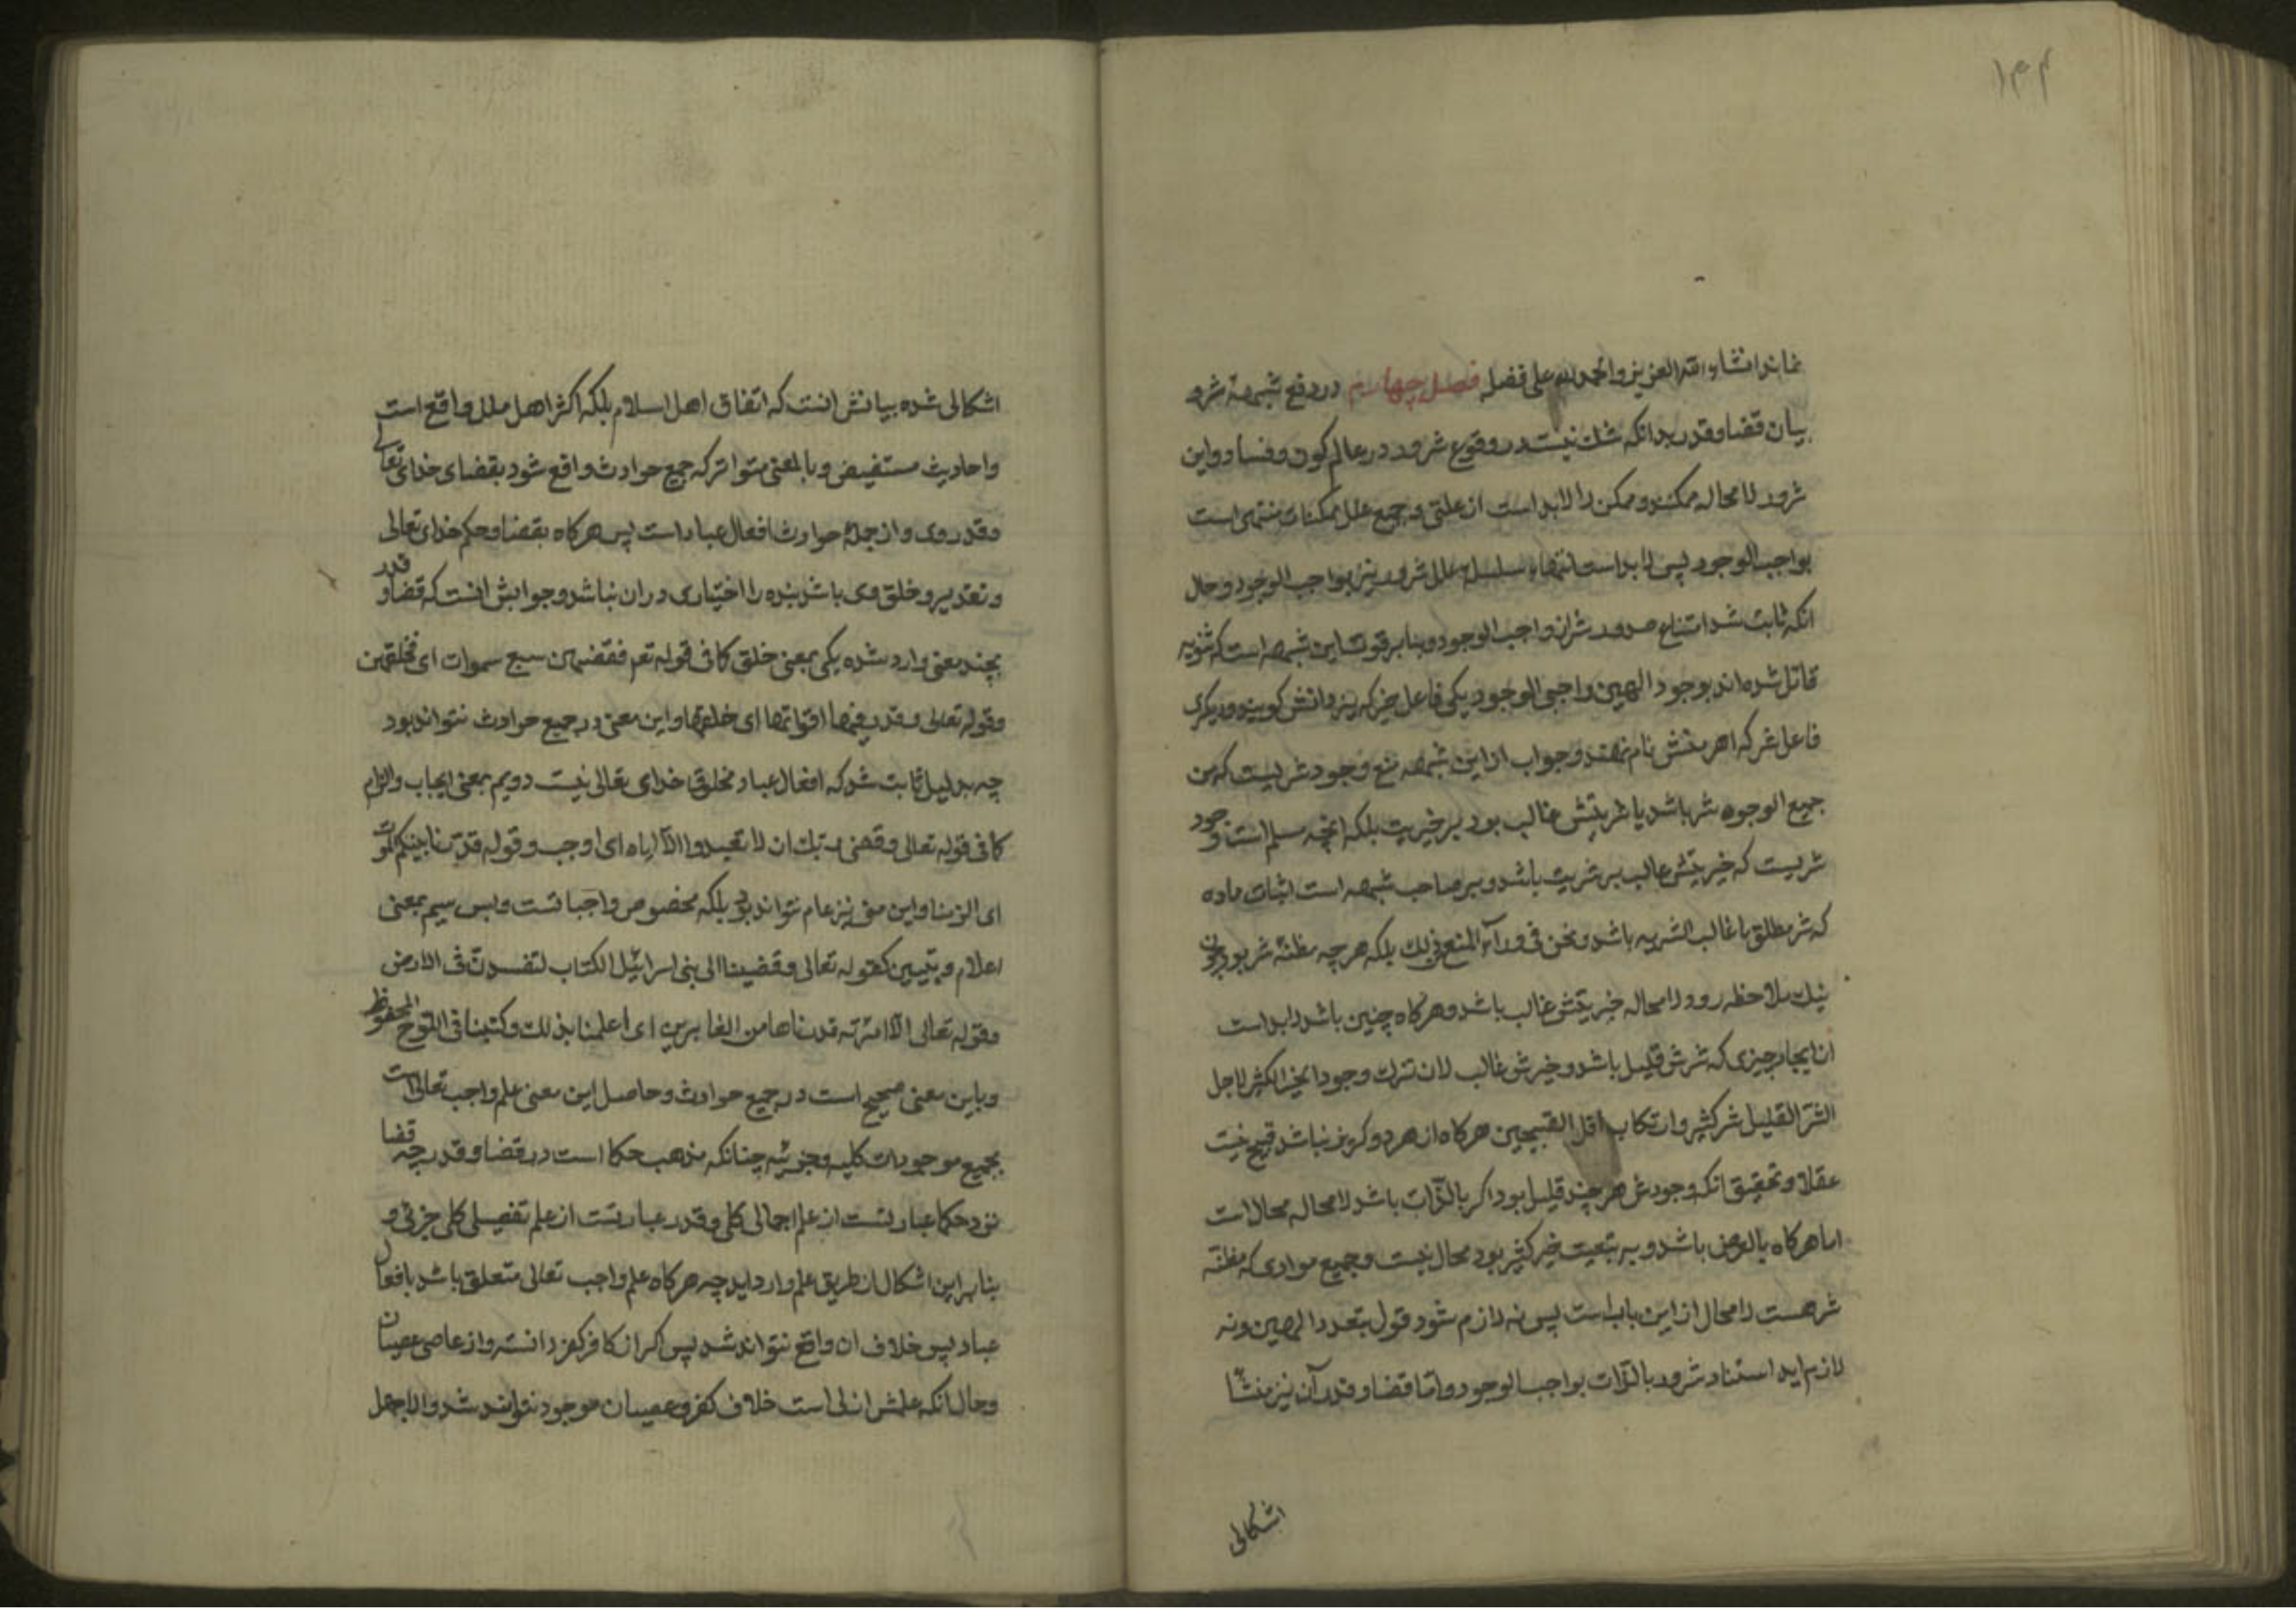 ۱۴۴
نماند انشاء الله العزیز والحمد لله علی فضله فصل چهارم در دفع شبههٔ شرور
بیان قضا و قدر بدانکه شک نیست در وقوع شرور در عالم کون و فساد و این
شرور لا محاله ممکنند و ممکن را لابد است از علتی و جمیع علل ممکنات منتهی است
بواجب الوجود پس لابد است انتهاء سلسلهٔ علل شرور نیز بواجب الوجود و حال
انکه ثابت شد امتناع صدور شر از واجب الوجود و بنا بر قوت این شبهه است که ثنویه
قائل شده اند بوجود الهین واجبی الوجود یکی فاعل خیر که یزدانش کویند و دیکری
فاعل شر که اهرمنش نام نهند و جواب از این شبهه منع وجود شریست که من
جمیع الوجوه شر باشد یا شریتش غالب بود بر خیریت بلکه انچه مسلم است وجود
شریست که خیریتش غالب بر شریت باشد و بر صاحب شبهه است اثبات ماده
که شر مطلق یا غالب الشریه باشد و نحن فی وراء المنع فی ذلک بلکه هر چه مظنهٔ شر بود چون
نیک ملاحظه رود لا محاله خیریتش غالب باشد و هرکاه چنین باشد لابد است
از ایجاد چیزی که شرش قلیل باشد و خیرش غالب لان ترک وجود الخیر الکثیر لاجل
الشر القلیل شر کثیر و ارتکاب اقل القبیحین هرکاه از هر دو کریز نباشد قبیح نیست
عقلا و تحقیق انکه وجودش هر چند قلیل بود اکر بالذات باشد لا محاله محال است
اما هرکاه بالعرض باشد و به تبعیت خیر کثیر بود محال نیست و جمیع موادی که مظنّه
شر هست لا محال از این باب است پس نه لازم شود قول بتعدد الهین و نه
لازم اید استناد شرور بالذات بواجب الوجود و اما قضا و قدر آن نیز منشأ
اشکالی
اشکالی شده بیانش انست که اتفاق اهل اسلام بلکه اکثر اهل ملل واقع است
و احادیث مستفیض و بالمعنی متواتر که جمیع حوادث واقع شود بقضای خدای تعالی
و قدر وی و از جملهٔ حوادث افعال عباد است پس هرکاه بقضا و حکم خدای تعالی
و تقدیر و خلق وی باشد بنده را اختیاری در ان نباشد و جوابش انست که قضا و قدر
بچند معنی وارد شده یکی بمعنی خلق کما فی قوله تعم فقضیهن سبع سموات ای فخلقهن
و قوله تعالی و قدر فیها اقواتها ای خلقها و این معنی در جمیع حوادث نتواند بود
چه بدلیل ثابت شد که افعال عباد مخلوق خدای تعالی نیست دویم بمعنی ایجاب و الزام
کما فی قوله تعالی و قضی ربک ان لا تعبدوا الا ایاه ای اوجب و قوله قدرنا بینکم الموت
ای الزمنا و این معنی نیز عام نتواند بود بلکه مخصوص واجبا تست و بس سیم بمعنی
اعلام و تبیین کقوله تعالی و قضینا الی بنی اسرائیل الکتاب لتفسدن فی الارض
و قوله تعالی الا امرته قدرناها من الغابرین ای اعلمنا بذلک و کتبنا فی اللوح المحفوظ
و باین معنی صحیح است در جمیع حوادث و حاصل این معنی علم واجب تعالی است
بجمیع موجودات کلیه و جزئیه چنانکه مذهب حکما است در قضا و قدر چه قضا
نزد حکما عبارتست از علم اجمالی کلی و قدر عبارتست از علم تفصیلی کلی جزئی و
بنا براین اشکال از طریق علم وارد اید چه هرکاه علم واجب تعالی متعلق باشد بافعال
عباد پس خلاف ان واقع نتواند شد پس اکر از کافر کفر دانسته و از عاصی عصیان
و حال انکه علمش ازلی است خلاف کفر و عصیان موجود نتواند شد و الا جهل